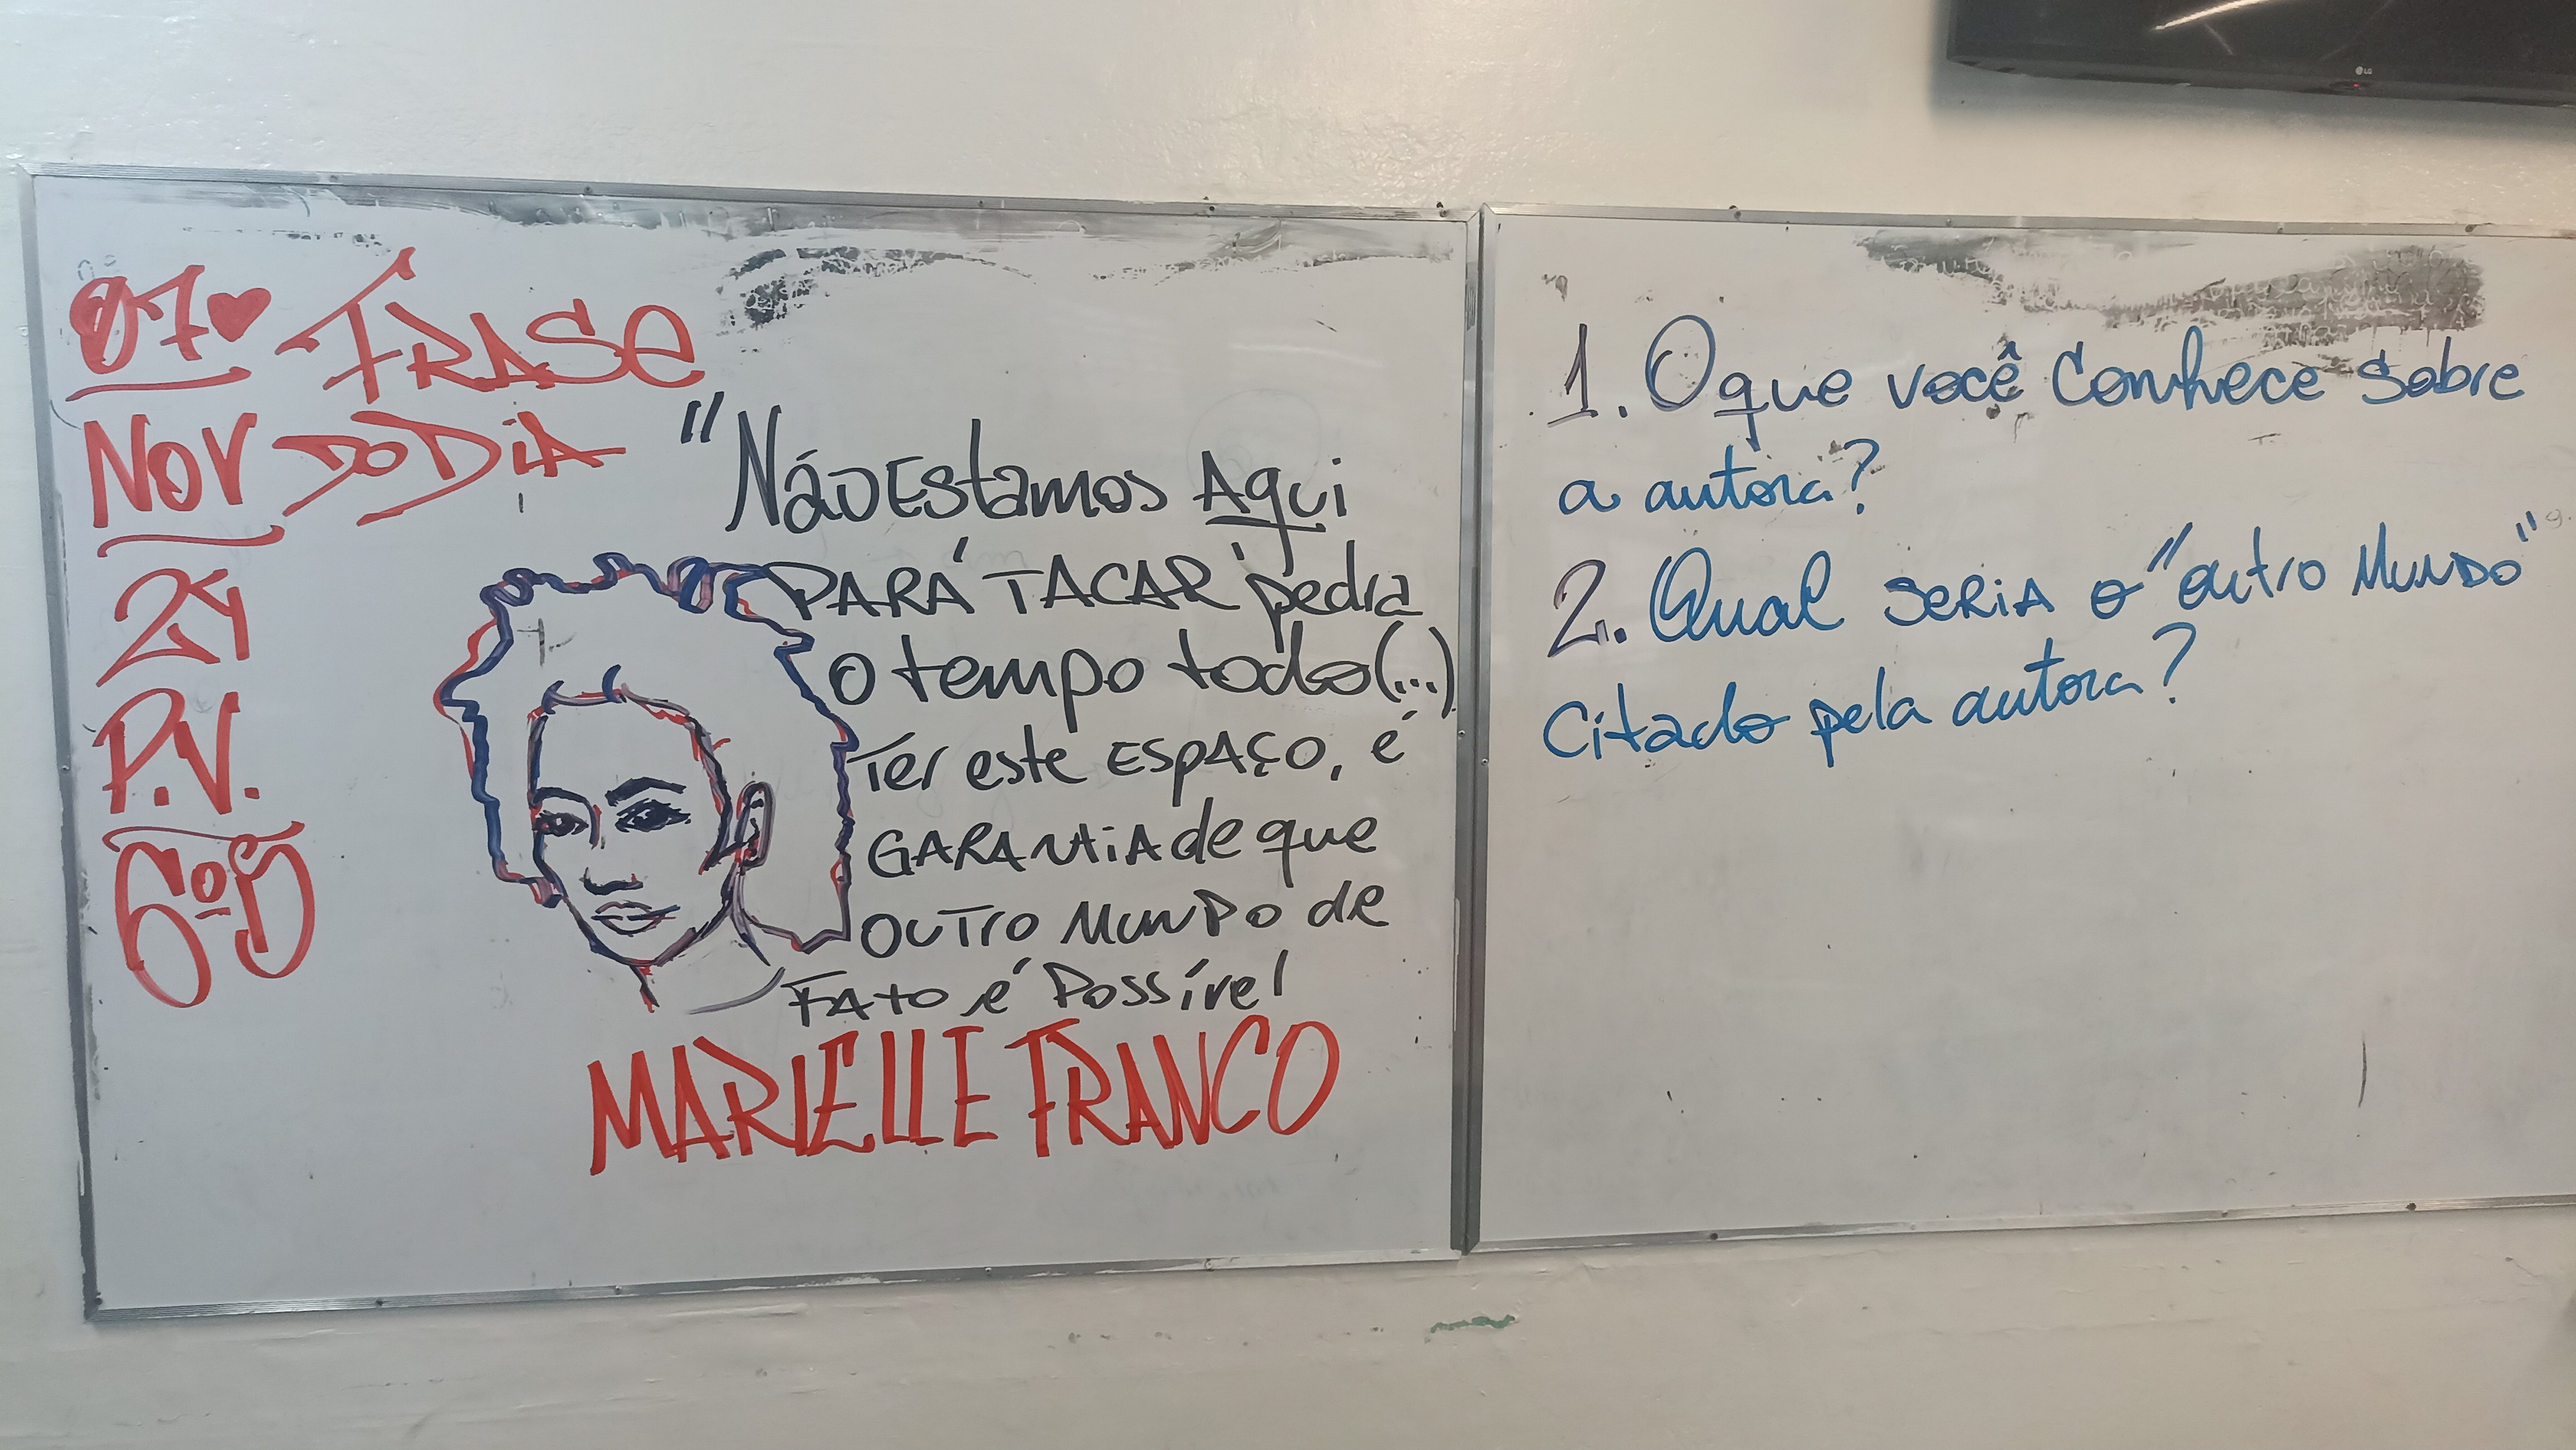 07♥
NOV
24
P.V.
6ºD
FRASE
DO DiA
"Não Estamos Aqui
PARA TACAR pedra
o tempo todo (...)
Ter este ESPAÇO, é
GARANtiA de que
OUTRO MUNDO de
FATO é Possível
MARIELLE FRANCO
1. O que você Conhece Sobre
a autora?
2. Qual SERIA o "outro MUNDO"
Citado pela autora?
LG